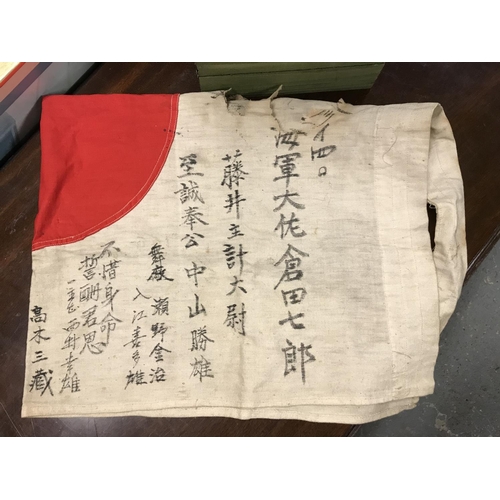 海軍大佐倉田七郎
藤井主計大尉
至誠奉公 中山勝雄
瀬野金治
入江喜多雄
不惜身命
誓酬君恩
幸雄
高木三藏